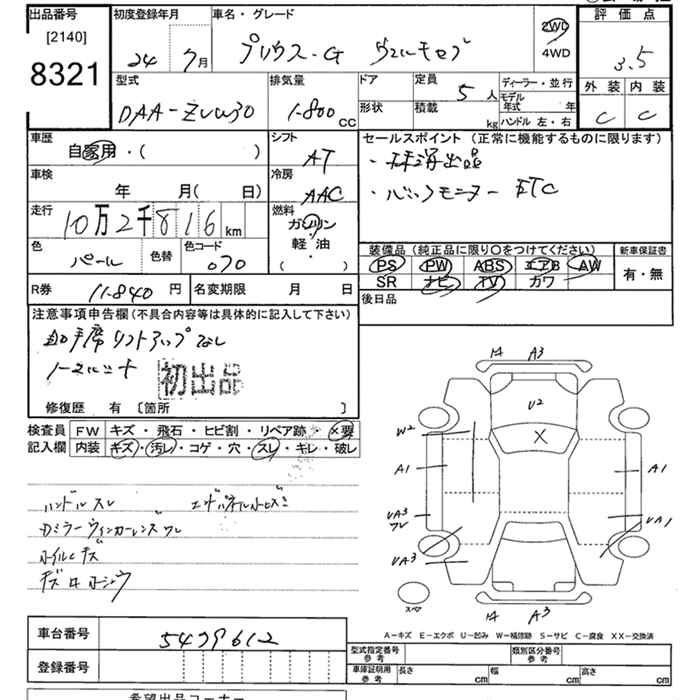 出品番号
[2140]
8321
初度登録年月
24 7月
車名・グレード
プリウス・G ウェルキャブ
2WD
4WD
評価点
3.5
外装 内装
C C
型式
DAA-ZVW30
排気量
1-800 CC
ドア
形状
定員
5人
積載
kg
ディーラー・並行
モデル年式 年
ハンドル 左・右
車歴
自家用・( )
シフト
AT
車検
年 月( 日)
冷房
AAC
走行
10万2千816 km
燃料
ガソリン
軽・油
( ・ )
色
パール
色替
色コード
070
R券
11-840円
名変期限 月 日
セールスポイント(正常に機能するものに限ります)
・バックモニター ETC
装備品(純正品に限り○をつけてください)
PS PW ABS エアB AW
SR ナビ TV カワ
新車保証書
有・無
後日品
注意事項申告欄(不具合内容等は具体的に記入して下さい)
助手席リフトアップなし
初出品
修復歴 有 〔箇所 〕
検査員記入欄
FW キズ・飛石・ヒビ割・リペア跡・×要
内装 キズ・汚レ・コゲ・穴・スレ・キレ・破レ
ハンドルスレ
ミラーウィンカーレンズワレ
ホイルキズ
14 A3
U2
X
W2
A1
A1
UA3
ワレ
UA1
UA3
スペア
14 A3
A-キズ E-エクボ U-凹み W-補修跡 S-サビ C-腐食 XX-交換済
車台番号
5439612
登録番号
型式指定番号
参考
類別区分番号
参考
車庫証明用
参考
長さ cm
幅 cm
高さ cm
希望出品コーナー